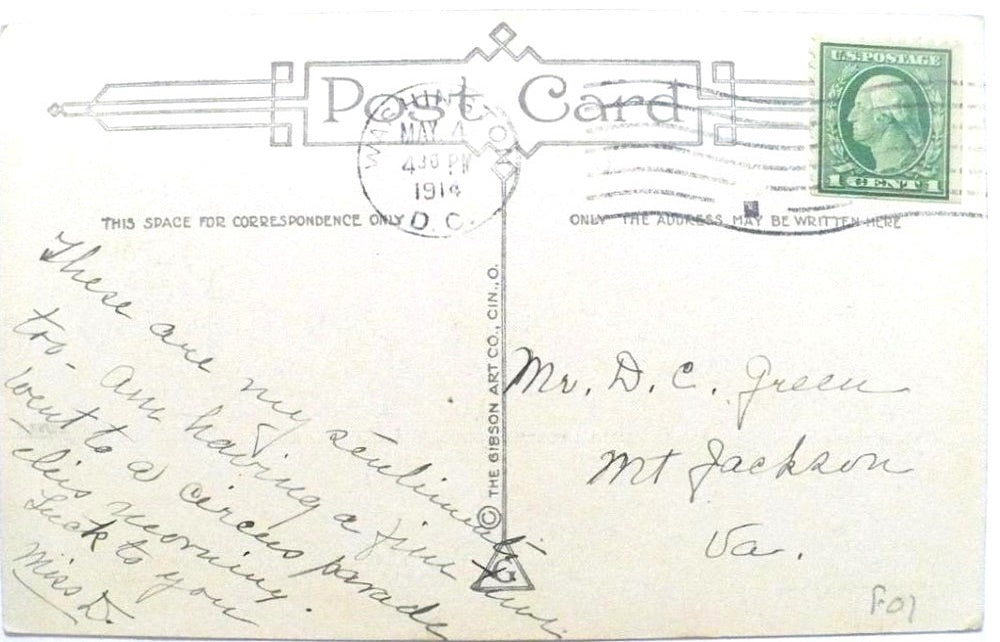 Post Card
U.S. POSTAGE
1 CENT 1
WASHINGTON
MAY 4
430 PM
1914
D. C.
THIS SPACE FOR CORRESPONDENCE ONLY
ONLY THE ADDRESS MAY BE WRITTEN HERE
These are my sentiments
too. Am having a fine time
Went to a circus parade
this morning.
Luck to you
Miss D.
© THE GIBSON ART CO., CIN., O.
G
Mr. D. C. Green
Mt Jackson
Va.
F01